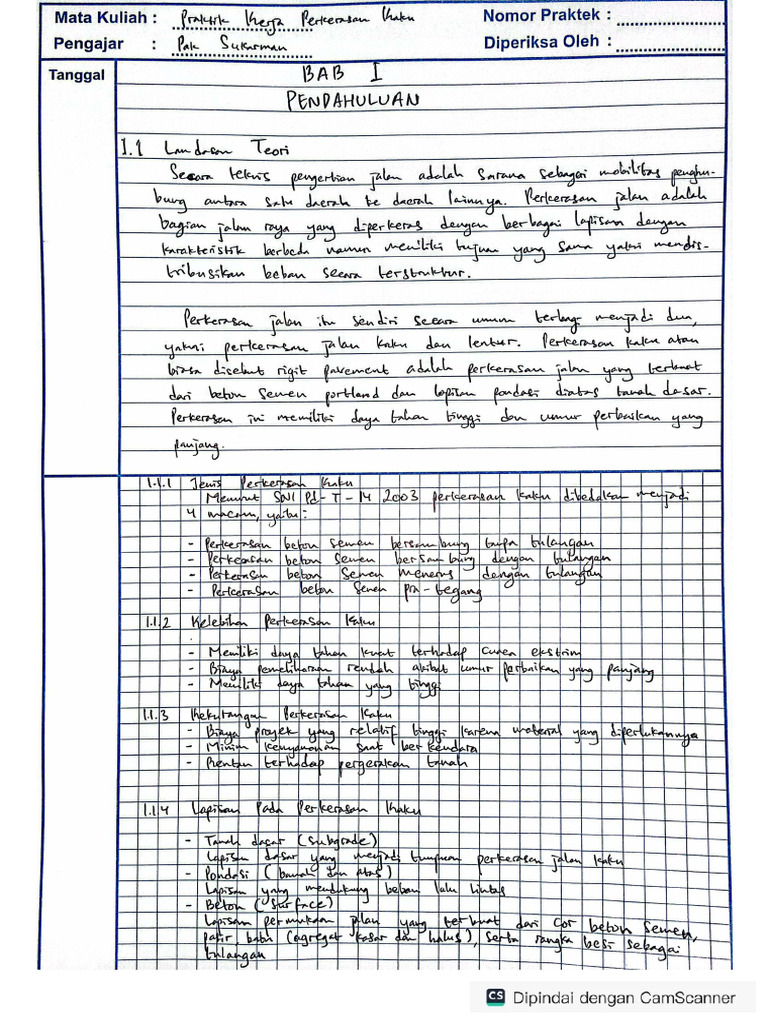 Mata Kuliah : Praktik Kerja Perkerasan Kaku
Nomor Praktek :
Pengajar : Pak Sukarman
Diperiksa Oleh :
Tanggal
BAB I
PENDAHULUAN
1.1 Landasan Teori
Secara teknis pengertian jalan adalah sarana sebagai mobilitas penghu-
bung antara satu daerah ke daerah lainnya. Perkerasan jalan adalah
bagian jalan raya yang diperkeras dengan berbagai lapisan dengan
karakteristik berbeda namun memiliki tujuan yang sama yakni mendis-
tribusikan beban secara terstruktur.
Perkerasan jalan itu sendiri secara umum terbagi menjadi dua,
yakni perkerasan jalan kaku dan lentur. Perkerasan kaku atau
biasa disebut rigit pavement adalah perkerasan jalan yang terbuat
dari beton semen portland dan lapisan pondasi diatas tanah dasar.
Perkerasan ini memiliki daya tahan tinggi dan umur perbaikan yang
panjang.
1.1.1 Jenis Perkerasan Kaku
Menurut SNI Pd-T-14 2003 perkerasan kaku dibedakan menjadi
4 macam, yaitu:
- Perkerasan beton semen bersambung tanpa tulangan
- Perkerasan beton semen bersambung dengan tulangan
- Perkerasan beton semen menerus dengan tulangan
- Perkerasan beton semen pra-tegang
1.1.2 Kelebihan Perkerasan Kaku
- Memiliki daya tahan kuat terhadap cuaca ekstrim
- Biaya pemeliharaan rendah akibat umur perbaikan yang panjang
- Memiliki daya tahan yang tinggi
1.1.3 Kekurangan Perkerasan Kaku
- Biaya proyek yang relatif tinggi karena material yang diperlukannya
- Minim kenyamanan saat berkendara
- Rentan terhadap pergerakan tanah
1.1.4 Lapisan Pada Perkerasan Kaku
- Tanah dasar (subgrade)
Lapisan dasar yang menjadi tumpuan perkerasan jalan kaku
- Pondasi (bawah dan atas)
Lapisan yang mendukung beban lalu lintas
- Beton (surface)
Lapisan permukaan jalan yang terbuat dari cor beton semen,
pasir, batu (agregat kasar dan halus), serta rangka besi sebagai
tulangan
CS Dipindai dengan CamScanner